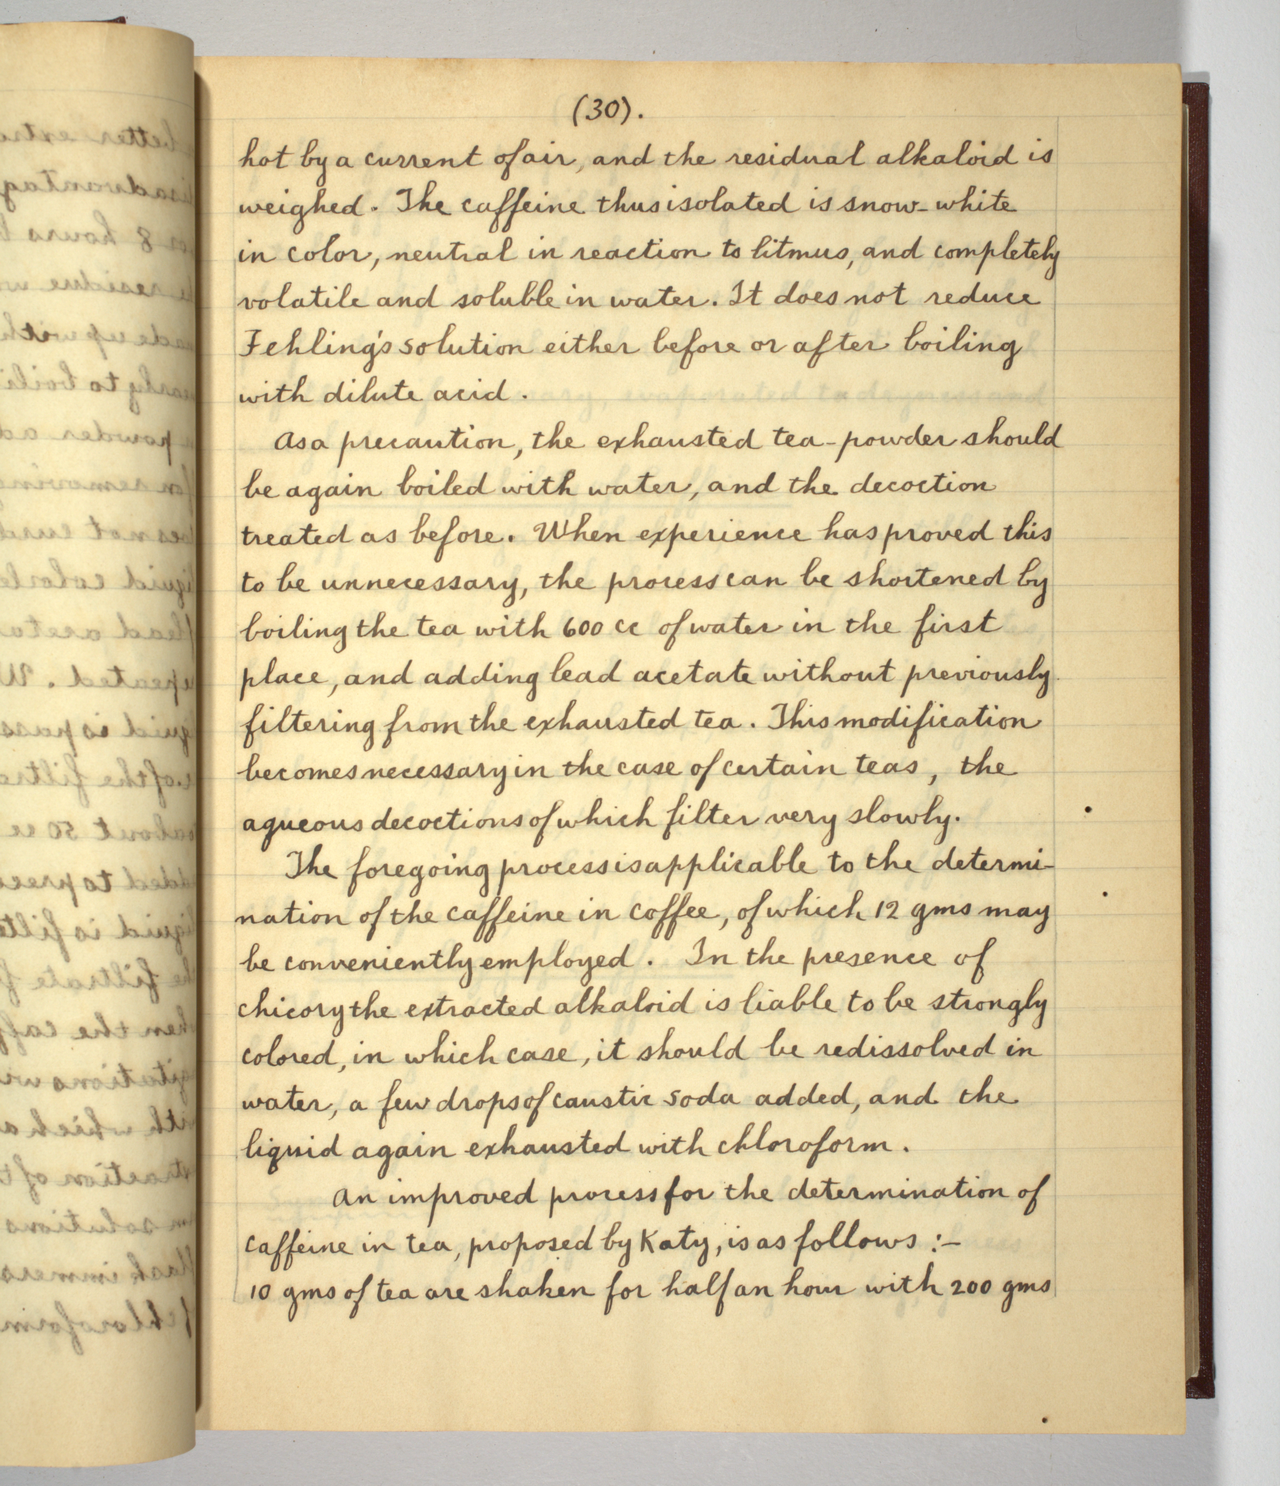 (30).
hot by a current of air, and the residual alkaloid is
weighed. The caffeine thus isolated is snow-white
in color, neutral in reaction to litmus, and completely
volatile and soluble in water. It does not reduce
Fehling's solution either before or after boiling
with dilute acid.
As a precaution, the exhausted tea-powder should
be again boiled with water, and the decoction
treated as before. When experience has proved this
to be unnecessary, the process can be shortened by
boiling the tea with 600 cc of water in the first
place, and adding lead acetate without previously
filtering from the exhausted tea. This modification
becomes necessary in the case of certain teas, the
aqueous decoctions of which filter very slowly.
The foregoing process is applicable to the determi-
nation of the caffeine in coffee, of which 12 gms may
be conveniently employed. In the presence of
chicory the extracted alkaloid is liable to be strongly
colored, in which case, it should be redissolved in
water, a few drops of caustic soda added, and the
liquid again exhausted with chloroform.
An improved process for the determination of
caffeine in tea, proposed by Katy, is as follows :-
10 gms of tea are shaken for half an hour with 200 gms